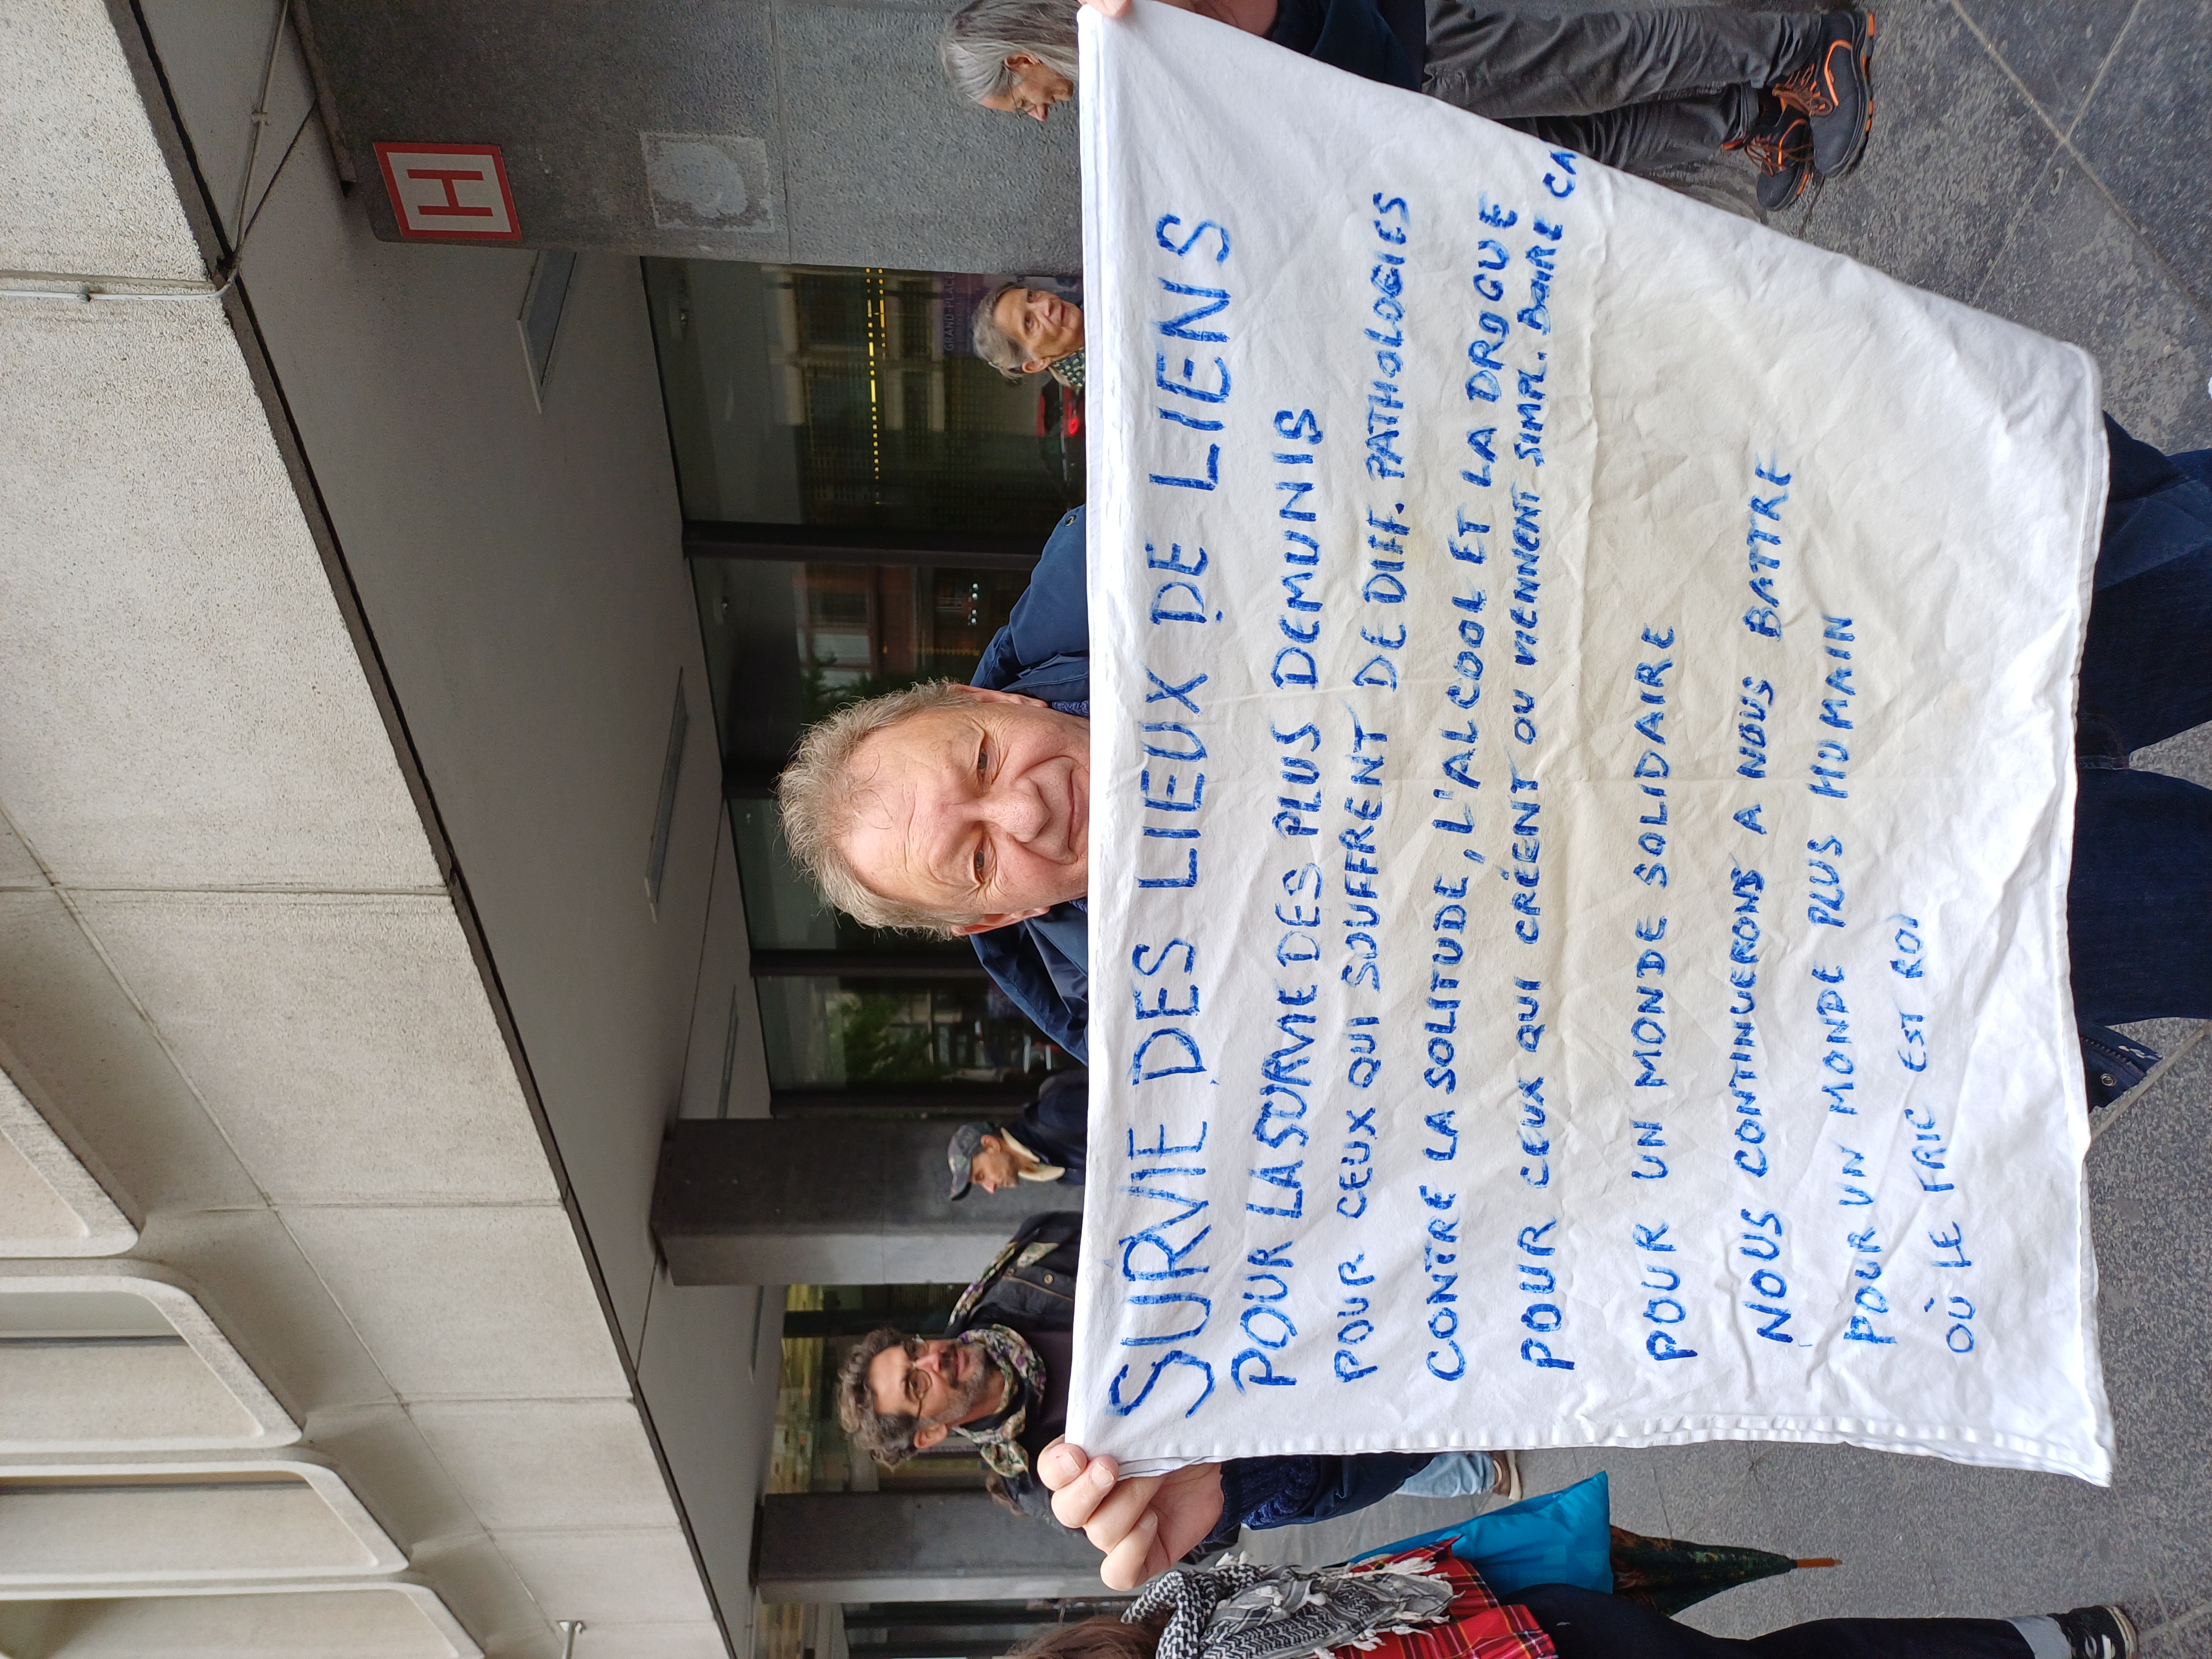 SURVIE DES LIEUX DE LIENS
POUR LA SURVIE DES PLUS DEMUNIS
POUR CEUX QUI SOUFFRENT DE DIFF. PATHOLOGIES
CONTRE LA SOLITUDE, L'ALCOOL ET LA DROGUE
POUR CEUX QUI CRÉENT OU VIENNENT SIMPL. BOIRE CA
POUR UN MONDE SOLIDAIRE
NOUS CONTINUERONS A NOUS BATTRE
POUR UN MONDE PLUS HUMAIN
OÙ LE FRIC EST ROI
H
GRAND-PLACE